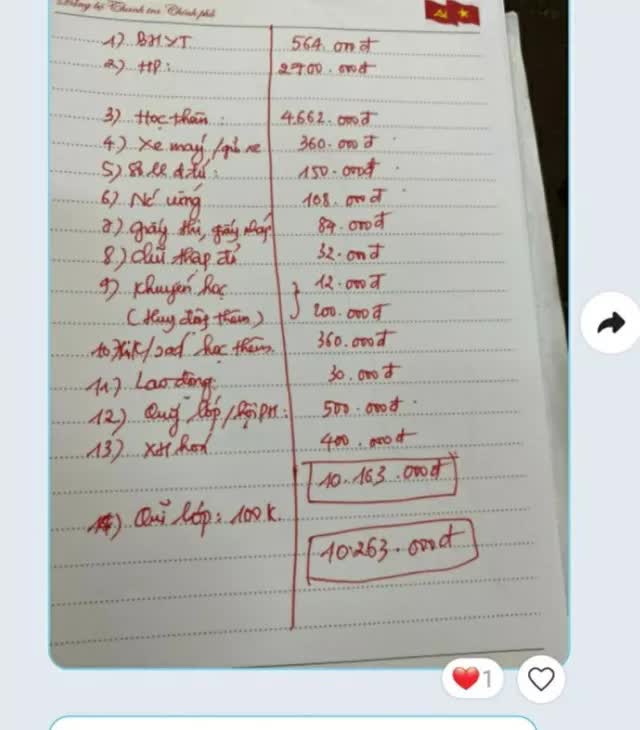 Đảng bộ Thanh tra Chính phủ
1) BHYT 564.000đ
2) HP: 2700.000đ
3) Học thêm: 4.662.000đ
4) Xe máy/gửi xe 360.000đ
5) Sổ LL đ.tử: 150.000đ
6) Nc' uống 108.000đ
7) giấy thi, giấy nháp 84.000đ
8) chữ thập đỏ 32.000đ
9) Khuyến học 12.000đ
(Huy động thêm) 200.000đ
10) học thêm 360.000đ
11) Lao động 30.000đ
12) Quỹ lớp/hội PH: 500.000đ
13) XH hoá 400.000đ
10.163.000đ
14) Quĩ lớp: 100K.
10.263.000đ
1